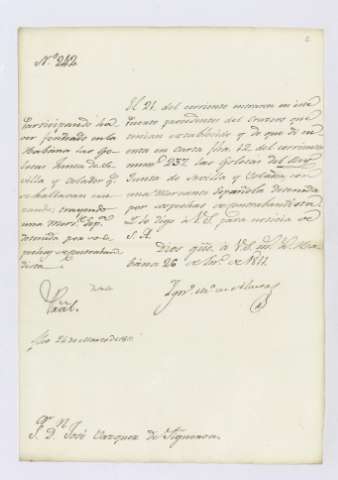 N.º 242
Participando ha
ver fondeado en la
Habana las Go-
letas Junta de Se-
villa y Celador q.
se hallaban cru-
zando, trayendo
una Merc.te Esp.la
detenida por sos-
El 21 del corriente entraron en este
Puerto procedentes del Crucero que
tenian establecido y de que di cu-
enta en carta fha. 12 del corriente
num.º 237, las Goletas del Rey
Junta de Sevilla y Celador con
una Mercante Española detenida
por sospechas de contrabandista.
Lo digo à V.E. para noticia de
S. A.
Dios gue. à V.E. m.s a.s Ha-
bana 26 de de 1811.
fho 24 de Marzo de 1811
S.or D.n José Vazquez de Figueroa.